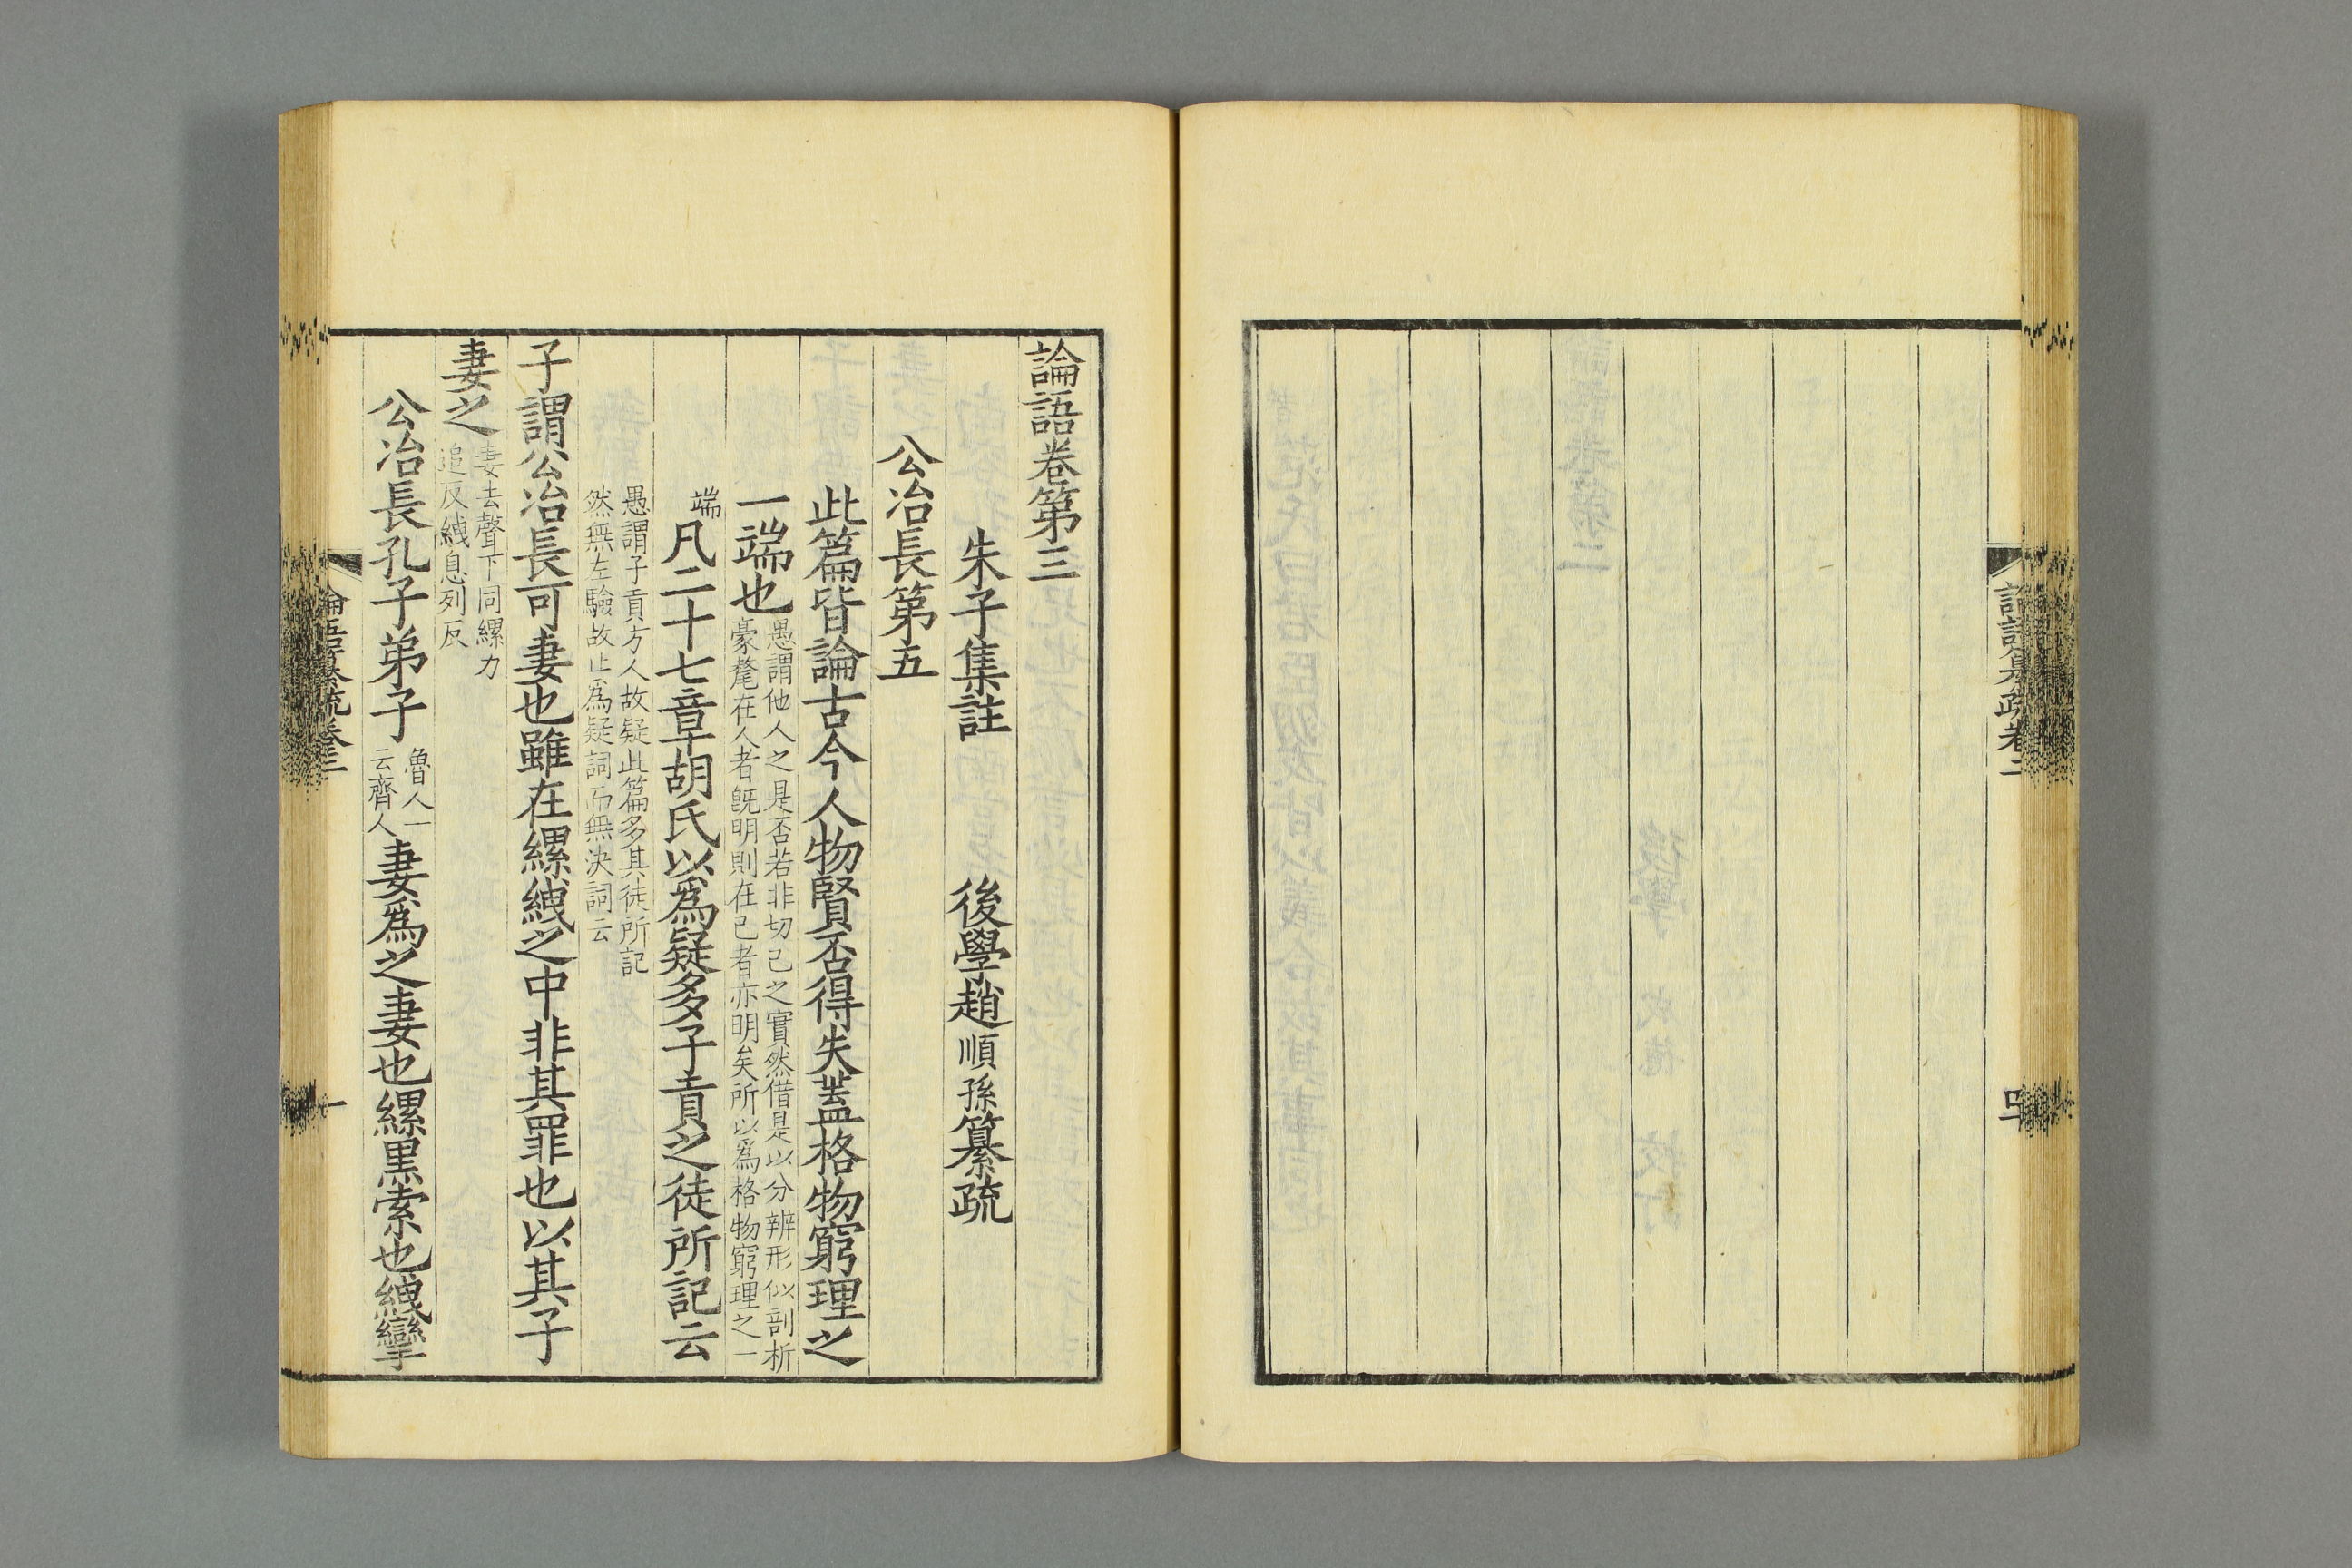 論語纂疏卷二
論語卷第三
朱子集註　後學趙順孫纂疏
公冶長第五
此篇皆論古今人物賢否得失蓋格物窮理之
一端也
愚謂他人之是否若非切己之實然借是以分辨形似剖析
豪釐在人者旣明則在己者亦明矣所以爲格物窮理之一
端
凡二十七章胡氏以爲疑多子貢之徒所記云
愚謂子貢方人故疑此篇多其徒所記
然無左驗故止爲疑詞而無決詞云
子謂公冶長可妻也雖在縲絏之中非其罪也以其子
妻之
妻去聲下同縲力
追反絏息列反
公冶長孔子弟子
魯人一
云齊人
妻爲之妻也縲黑索也絏攣
論語纂疏卷三
一